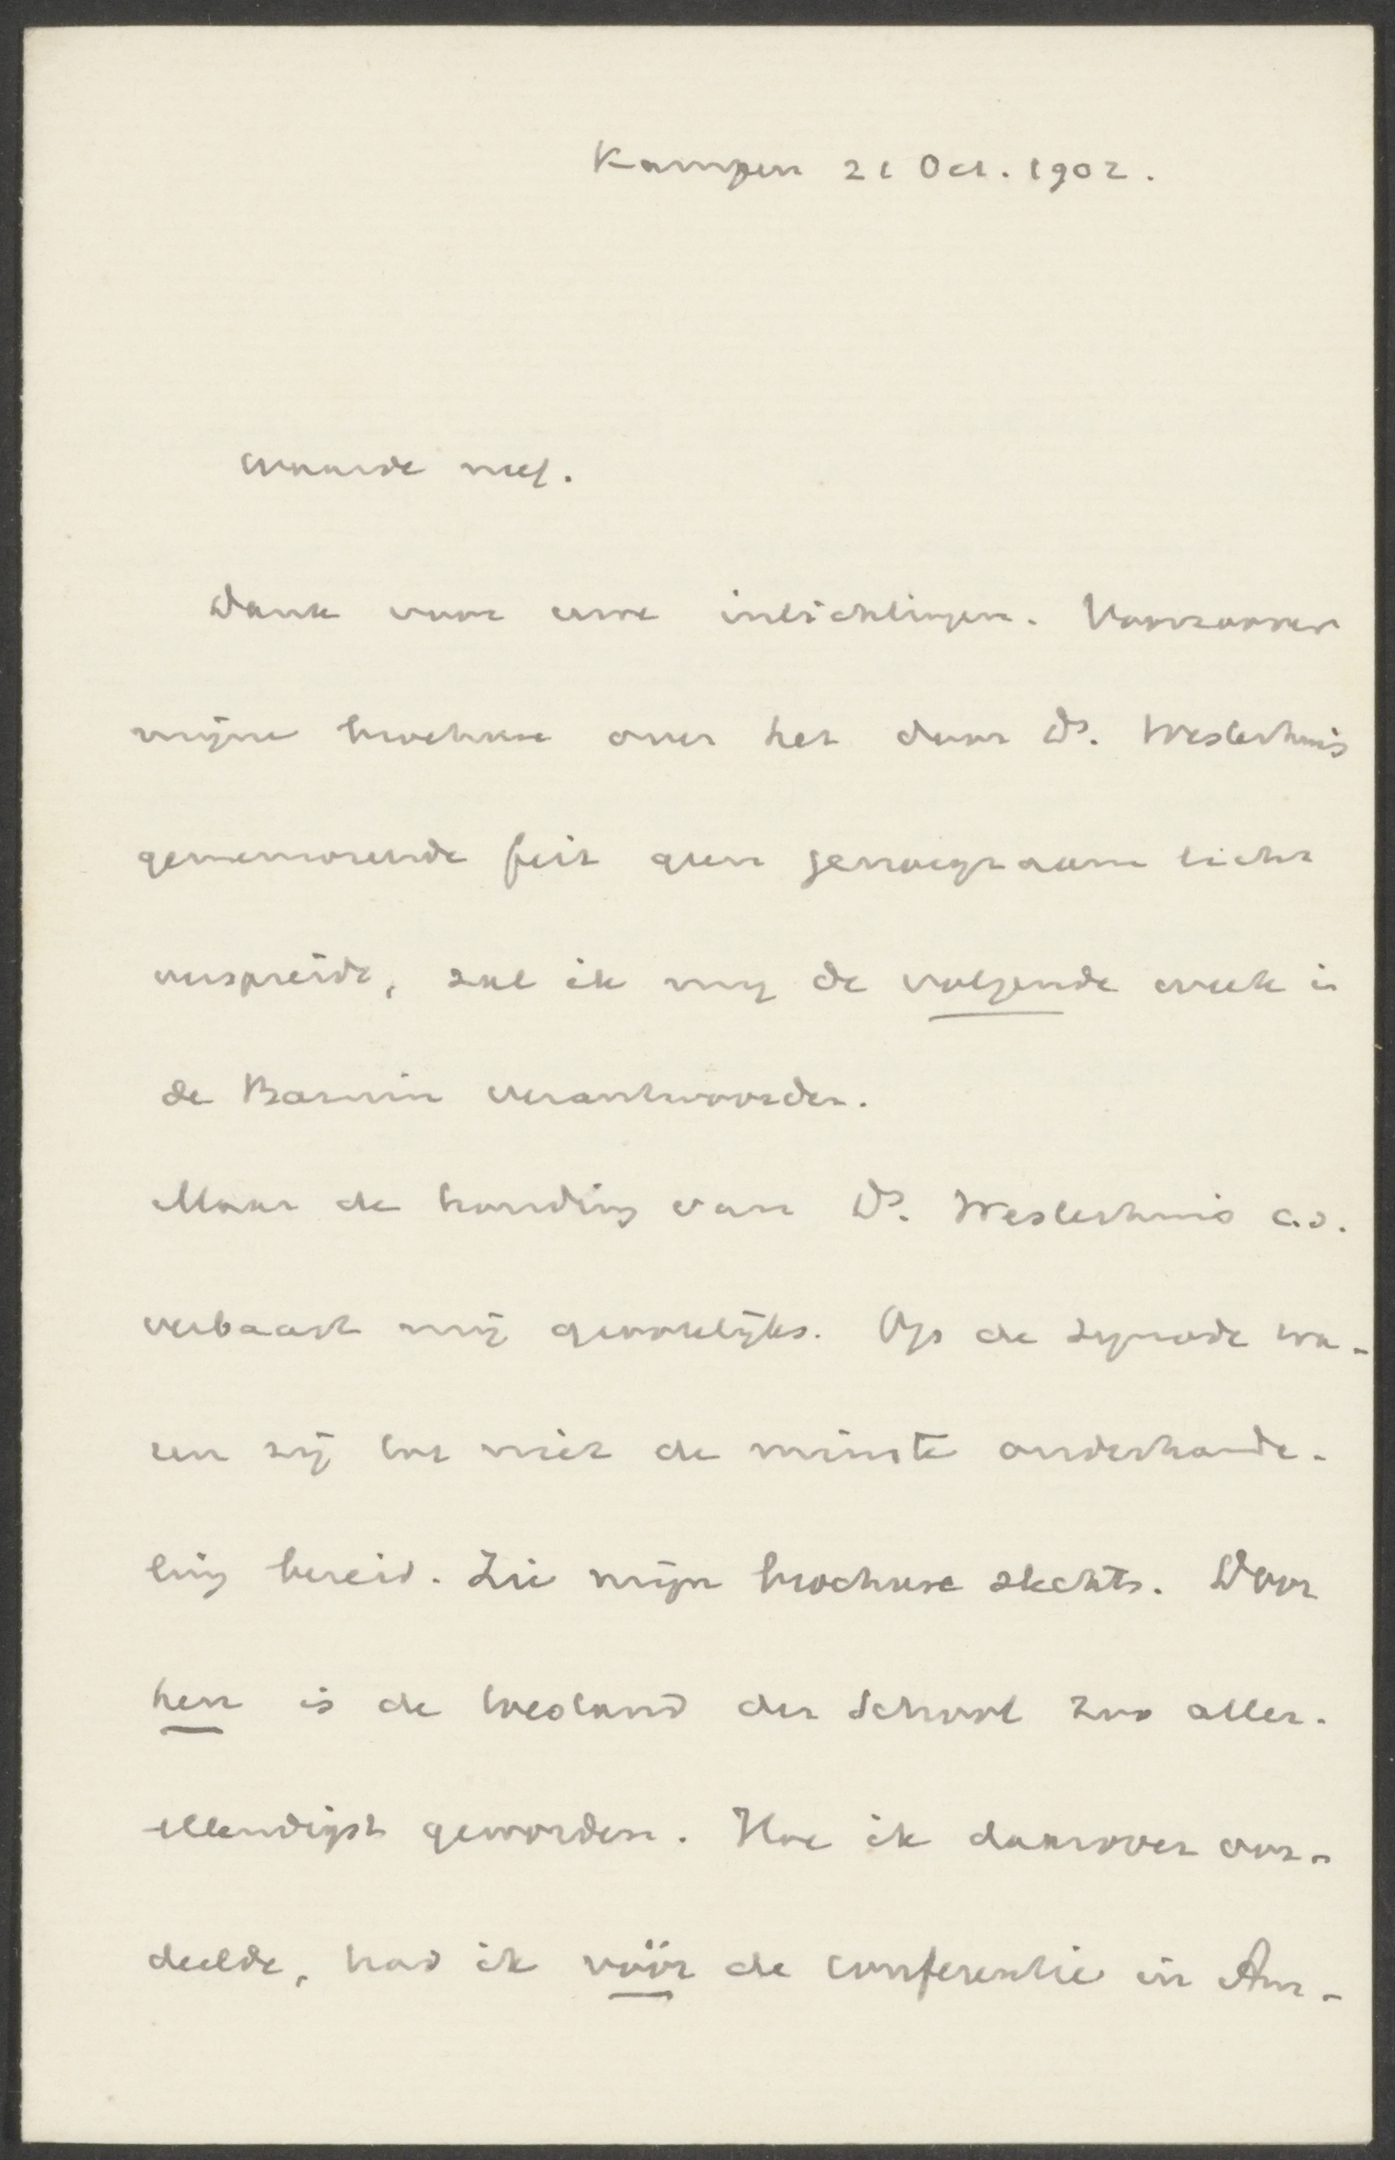 Kampen 21 Oct. 1902.
Waarde neef.
Dank voor uwe inlichtingen. Voorzoover
mijne brochure over het door Ds. Westerhuis
gememoreerde feit geen genoegzaam licht
verspreidt, zal ik mij de volgende week in
de Bazuin verantwoorden.
Maar de houding van Ds. Westerhuis c.s.
verbaast mij grootelijks. Op de Synode wa-
ren zij tot niet de minste onderhande-
ling bereid. Zie mijn brochure slechts. Door
hen is de toestand der School zoo aller-
ellendigst geworden. Hoe ik daarover oor-
deelde, had ik vóór de conferentie in Am-